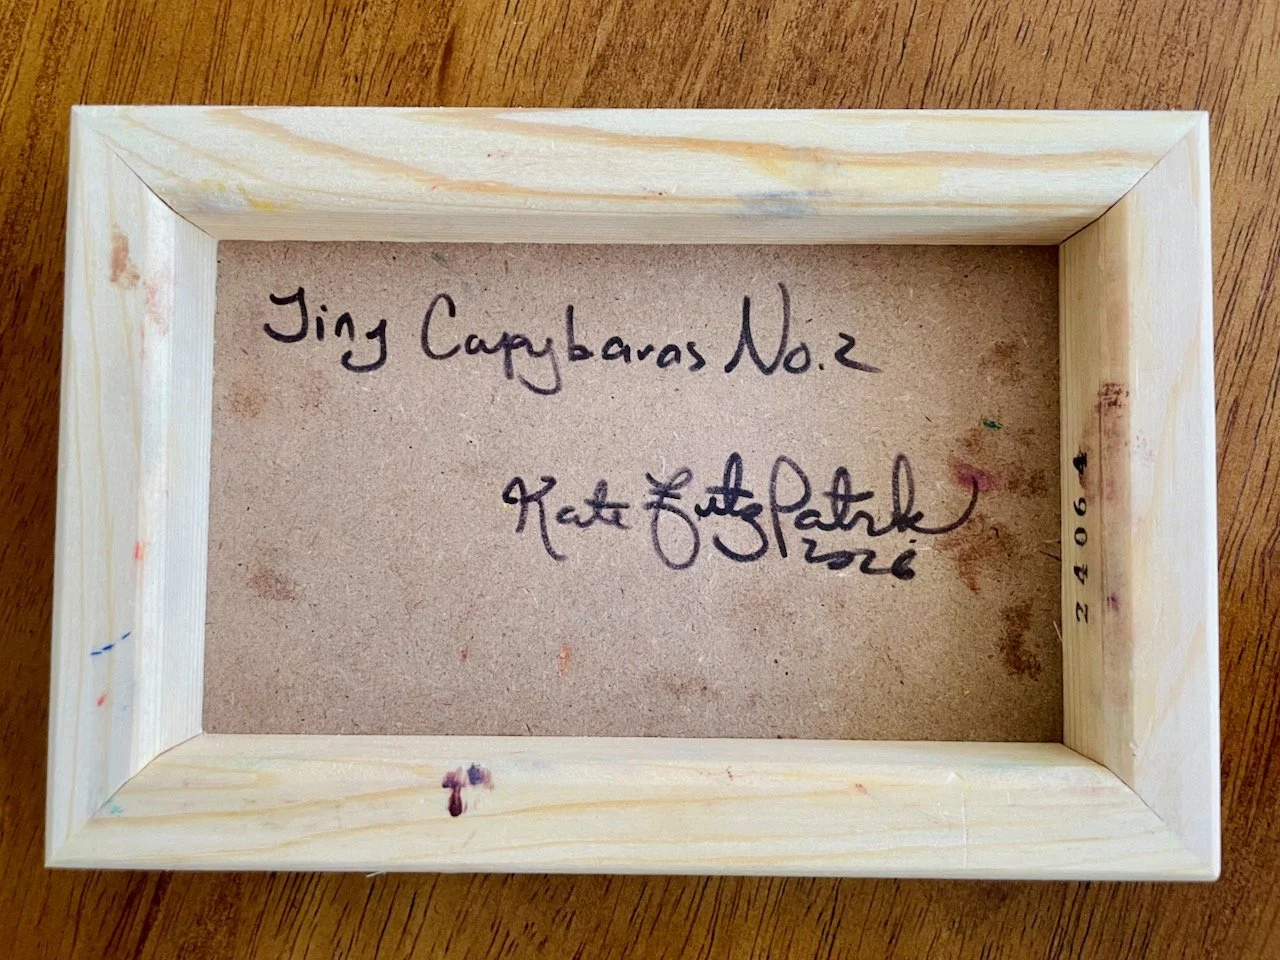 Tiny Capybaras No.2
Kate FitzPatrick
2026
24064